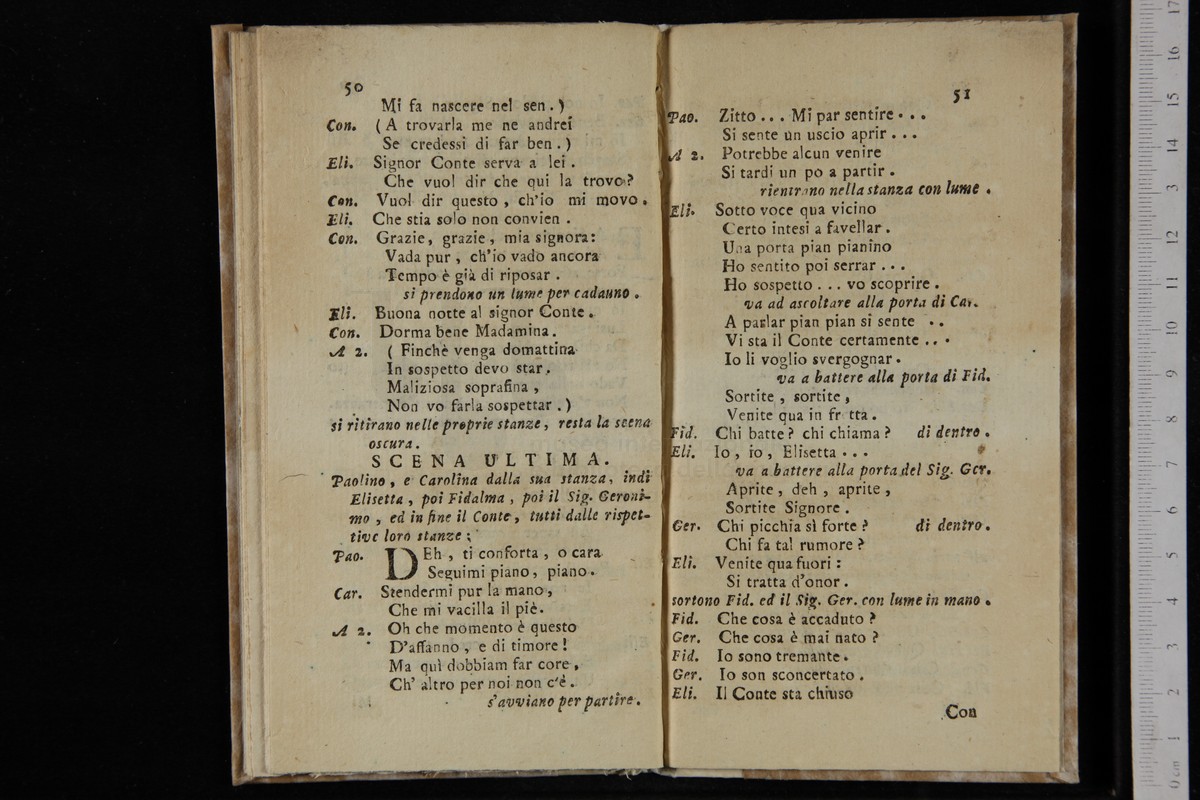 50
Mi fa nascere nel sen.)
Con. (A trovarla me ne andrei
Se credessi di far ben.)
Eli. Signor Conte serva a lei.
Che vuol dir che qui la trovo?
Con. Vuol dir questo, ch'io mi movo.
Eli. Che stia solo non convien.
Con. Grazie, grazie, mia signora:
Vada pur, ch'io vado ancora
Tempo è già di riposar.
si prendono un lume per cadauno.
Eli. Buona notte al signor Conte.
Con. Dorma bene Madamina.
A 2. (Finchè venga domattina
In sospetto devo star,
Maliziosa soprafina,
Non vo farla sospettar.)
si ritirano nelle proprie stanze, resta la scena
oscura.
SCENA ULTIMA.
Paolino, e Carolina dalla sua stanza, indi
Elisetta, poi Fidalma, poi il Sig. Geroni-
mo, ed in fine il Conte, tutti dalle rispet-
tive loro stanze;
Pao. DEh, ti conforta, o cara
Seguimi piano, piano.
Car. Stendermi pur la mano,
Che mi vacilla il piè.
A 2. Oh che momento è questo
D'affanno, e di timore!
Ma quì dobbiam far core,
Ch' altro per noi non c'è.
s'avviano per partire.
51
Pao. Zitto... Mi par sentire...
Si sente un uscio aprir...
A 2. Potrebbe alcun venire
Si tardi un po a partir.
rientrano nella stanza con lume.
Eli. Sotto voce qua vicino
Certo intesi a favellar.
Una porta pian pianino
Ho sentito poi serrar...
Ho sospetto... vo scoprire.
va ad ascoltare alla porta di Car.
A parlar pian pian si sente ..
Vi sta il Conte certamente...
Io li voglio svergognar.
va a battere alla porta di Fid.
Sortite, sortite,
Venite qua in fr tta.
Fid. Chi batte? chi chiama? di dentro.
Eli. Io, io, Elisetta...
va a battere alla porta del Sig. Ger.
Aprite, deh, aprite,
Sortite Signore.
Ger. Chi picchia sì forte? di dentro.
Chi fa tal rumore?
Eli. Venite qua fuori:
Si tratta d'onor.
sortono Fid. ed il Sig. Ger. con lume in mano.
Fid. Che cosa è accaduto?
Ger. Che cosa è mai nato?
Fid. Io sono tremante.
Ger. Io son sconcertato.
Eli. Il Conte sta chiuso
Con